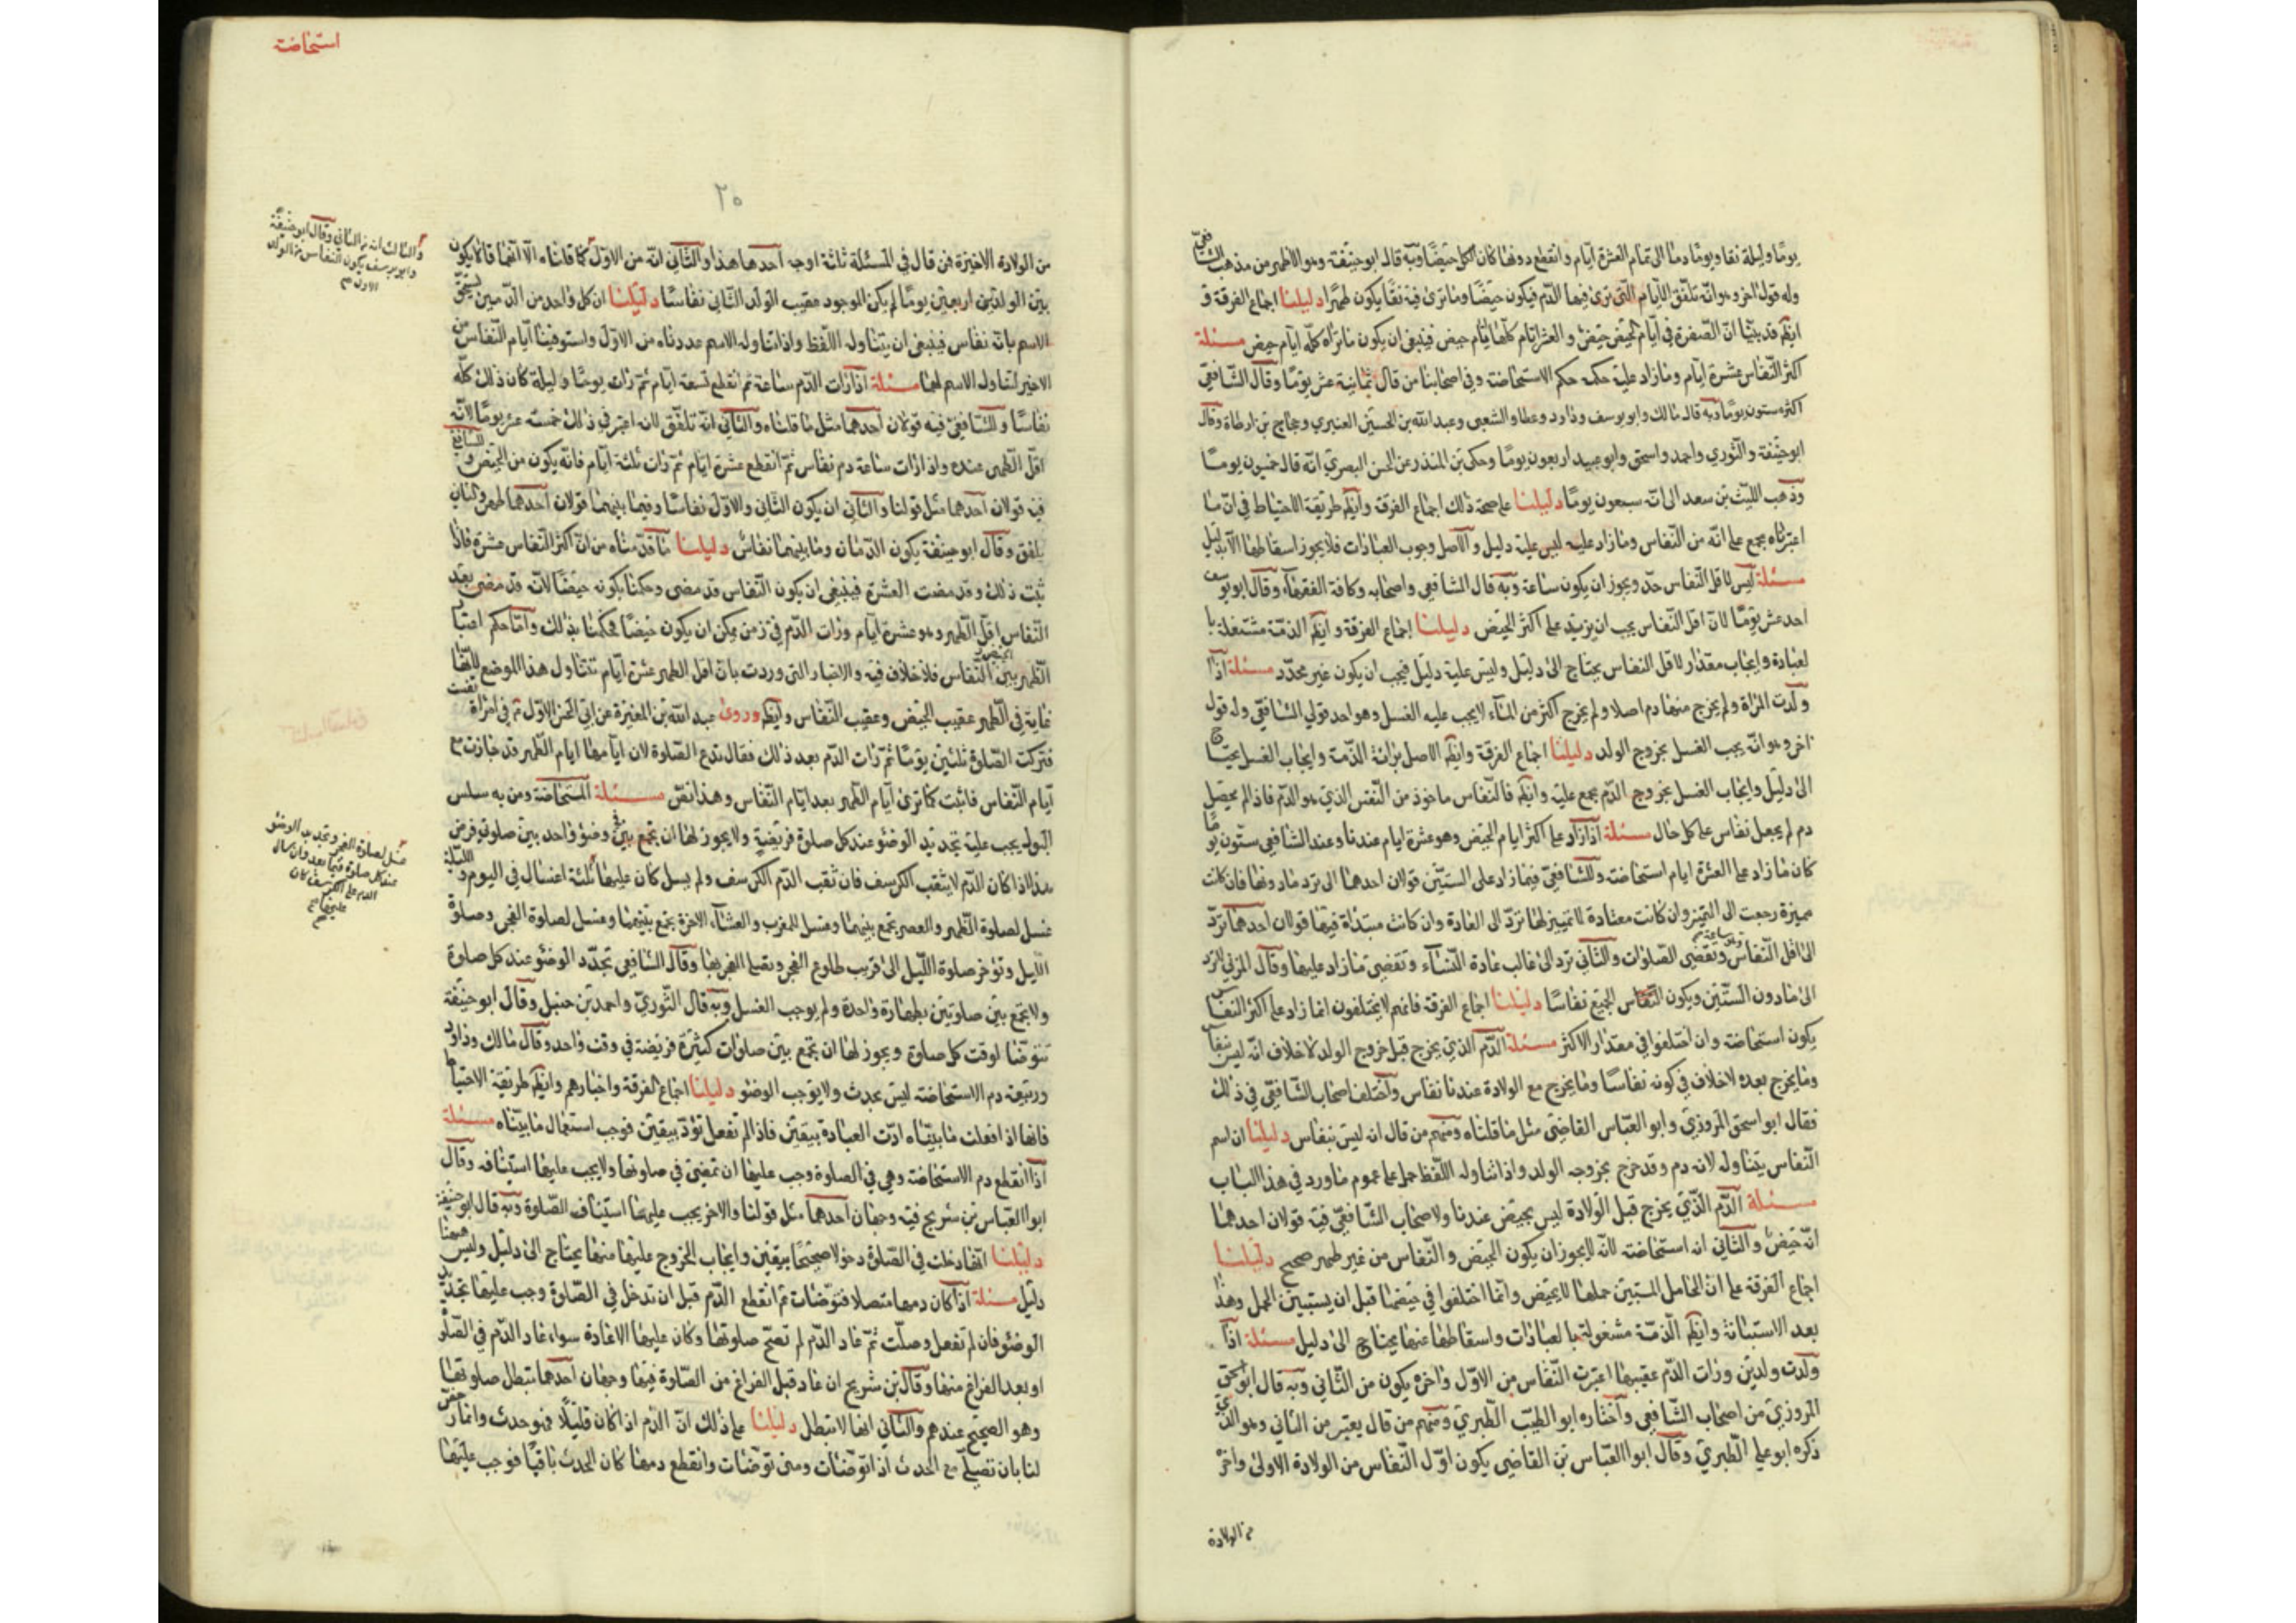 يومًا وليلة نقاء ويومًا دمًا الى تمام العشرة ايام وانقطع دونها كان الكل حيضًا وبه قال ابو حنيفة وهو الاظهر من مذهب الشافعي
وله قول اخر وهو انه تلفق الايام التي ترى فيها الدم فيكون حيضًا وما ترى فيه نقاء يكون طهرًا دليلنا اجماع الفرقة و
ايضا قد بينا ان الصفرة في ايام الحيض حيض والعشرة ايام كلها ايام حيض فينبغي ان يكون ما تراه كله ايام حيض مسئلة
اكثر النفاس عشرة ايام وما زاد عليه حكمه حكم الاستحاضة وفي اصحابنا من قال ثمانية عشر يومًا وقال الشافعي
اكثره ستون يومًا وبه قال مالك وابو يوسف وداود وعطا والشعبي وعبد الله بن الحسين العنبري وحجاج بن ارطاة وقال
ابو حنيفة والثوري واحمد واسحق وابو عبيد اربعون يومًا وحكى بن المنذر عن الحسن البصري انه قال خمسون يومًا
وذهب الليث بن سعد الى انه سبعون يومًا دليلنا على صحة ذلك اجماع الفرقة وايضا طريقة الاحتياط في ان ما
اعتبرناه مجمع على انه من النفاس وما زاد عليه ليس عليه دليل والاصل وجوب العبادات فلا يجوز اسقاطها الا بدليل
مسئلة ليس لاقل النفاس حد ويجوز ان يكون ساعة وبه قال الشافعي واصحابه وكافة الفقهاء وقال ابو يوسف
احد عشر يومًا لان اقل النفاس يجب ان يزيد على اكثر الحيض دليلنا اجماع الفرقة وايضا الذمة مشتغلة با
لعبادة وايجاب مقدار لاقل النفاس يحتاج الى دليل وليس عليه دليل فيجب ان يكون غير محدد مسئلة اذا
ولدت المراة ولم يخرج منها دم اصلا ولم يخرج اكثر من الماء لا يجب عليه الغسل وهو احد قولي الشافعي وله قول
اخر وهو انه يجب الغسل بخروج الولد دليلنا اجماع الفرقة وايضا الاصل برائة الذمة وايجاب الغسل يحتاج
الى دليل وايجاب الغسل بخروج الدم مجمع عليه وايضا فالنفاس ماخوذ من النفس الذي هو الدم فاذا لم يحصل
دم لم يجعل نفاس على كل حال مسئلة اذا زاد على اكثر ايام الحيض وهو عشرة ايام عندنا وعند الشافعي ستون يومًا
كان ما زاد على العشرة ايام استحاضة وللشافعي فيما زاد على الستين قولان احدهما الى ترد ما دونها فان كانت
مميزة رجعت الى التميز وان كانت معتادة لا تمييز لها ترد الى العادة وان كانت مبتداة فيها قولان احدهما ترد
الى اقل النفاس وتقضي الصلوات والثاني ترد الى غالب عادة النساء وتقضي ما زاد عليها وقال المزني ترد
الى ما دون الستين ويكون الجميع نفاسًا دليلنا اجماع الفرقة فانهم لا يختلفون انما زاد على اكثر النفاس
يكون استحاضة وان اختلفوا في مقدار الاكثر مسئلة الدم الذي يخرج قبل خروج الولد لا خلاف انه ليس نفاس
وما يخرج بعده لا خلاف في كونه نفاسًا وما يخرج مع الولادة عندنا نفاس واختلف اصحاب الشافعي في ذلك
فقال ابو اسحق المروزي وابو العباس القاضي مثل ما قلناه ومنهم من قال انه ليس بنفاس دليلنا ان اسم
النفاس يتناوله لانه دم وقد خرج بخروجه الولد واذا تناوله اللفظ حمل على عموم ما ورد في هذا الباب
مسئلة الدم الذي يخرج قبل الولادة ليس بحيض عندنا ولاصحاب الشافعي فيه قولان احدهما
انه حيض والثاني انه استحاضة لانه لا يجوز ان يكون الحيض والنفاس من غير طهر صحيح دليلنا
اجماع الفرقة على ان الحامل المستبين حملها لا يحيض وانما اختلفوا في حيضها قبل ان يستبين الحمل وهذا
بعد الاستبانة وايضا الذمة مشغولة بالعبادات واسقاطها عنها يحتاج الى دليل مسئلة اذا
ولدت ولدين ورات الدم عقيبهما اعتبرت النفاس من الاول واخره يكون من الثاني وبه قال ابو اسحق
المروزي من اصحاب الشافعي واختاره ابو الطيب الطبري ومنهم من قال يعتبر من الثاني وهو الذي
ذكره ابو علي الطبري وقال ابو العباس بن القاضي يكون اول النفاس من الولادة الاولى واخر
من الولادة
استحاضة
٢٠
من الولادة الاخيرة فمن قال في المسئلة ثلثة اوجه احدها هذا والثاني انه من الاول كما قلناه الا انهما قالا يكون
بين الولدين اربعين يومًا لم يكن الموجود عقيب الولد الثاني نفاسًا دليلنا ان كل واحد من الدمين يستحق
الاسم بانه نفاس فينبغي ان يتناوله اللفظ واذا تناوله الاسم عددناه من الاول واستوفينا ايام النفاس من
الاخير لتناول الاسم لهما مسئلة اذا رات الدم ساعة ثم انقطع تسعة ايام ثم رات يومًا وليلة كان ذلك كله
نفاسًا وللشافعي فيه قولان احدهما مثل ما قلناه والثاني انه تلفق لانه اعتبر في ذلك خمسة عشر يومًا لانه
اقل الطهر عنده واذا رات ساعة دم نفاس ثم انقطع عشرة ايام ثم رات ثلثة ايام فانه يكون من الحيض وللشافعي
فيه قولان احدهما مثل قولنا والثاني ان يكون الثاني والاول نفاسًا وفيما بينهما قولان احدهما طهر والثاني
يلفق وقال ابو حنيفة يكون الدمان وما بينهما نفاس دليلنا ما قدمناه من ان اكثر النفاس عشرة فاذا
ثبت ذلك وقد مضت العشرة فينبغي ان يكون النفاس قد مضى وحكمنا بكونه حيضًا لانه قد مضى بعد
النفاس اقل الطهر وهو عشرة ايام ورات الدم في زمن يمكن ان يكون حيضًا فحكمنا بذلك واما حكم اعتبار
الطهر بين الحيض والنفاس فلا خلاف فيه والاخبار التي وردت بان اقل الطهر عشرة ايام تتناول هذا الموضع لانها
عامة في الطهر عقيب الحيض وعقيب النفاس وايضا وروى عبد الله بن المغيرة عن ابي الحسن الاول ع في امراة نفست
فتركت الصلوة ثلثين يومًا ثم رات الدم بعد ذلك فقال تدع الصلوة لان ايامها ايام الطهر قد جازت مع
ايام النفاس فاثبت كما ترى ايام الطهر بعد ايام النفاس وهذا نص مسئلة المستحاضة ومن به سلس
البول يجب عليه تجديد الوضوء عند كل صلوة فريضة ولا يجوز لها ان تجمع بين وضوء واحد بين صلوتي فرض
هذا اذا كان الدم لا يثقب الكرسف فان ثقب الدم الكرسف ولم يسل كان عليها ثلثة اغسال في اليوم والليلة
غسل لصلوة الظهر والعصر تجمع بينهما وغسل للمغرب والعشاء الاخرة تجمع بينهما وغسل لصلوة الفجر وصلوة
الليل وتؤخر صلوة الليل الى قريب طلوع الفجر وتصلي الفجر بها وقال الشافعي تجدد الوضوء عند كل صلوة
ولا تجمع بين صلوتين بطهارة واحدة ولم يوجب الغسل وبه قال الثوري واحمد بن حنبل وقال ابو حنيفة
تتوضا لوقت كل صلوة ويجوز لها ان تجمع بين صلوات كثيرة فريضة في وقت واحد وقال مالك وداود
وربيعة دم الاستحاضة ليس بحدث ولا يوجب الوضوء دليلنا اجماع الفرقة واخبارهم وايضا طريقة الاحتياط
فانها اذا فعلت ما بيناه ادت العبادة بيقين فاذا لم تفعل تؤد بيقين فوجب استعمال ما بيناه مسئلة
اذا انقطع دم الاستحاضة وهي في الصلوة وجب عليها ان تمضي في صلوتها ولا يجب عليها استينافه وقال
ابو العباس بن سريج فيه وجهان احدهما مثل قولنا والاخر يجب عليها استيناف الصلوة وبه قال ابو حنيفة
دليلنا انها دخلت في الصلوة دخولا صحيحًا بيقين وايجاب الخروج عليها منها يحتاج الى دليل وليس ههنا
دليل مسئلة اذا كان دمها متصلا فتوضات ثم انقطع الدم قبل ان تدخل في الصلوة وجب عليها تجديد
الوضوء فان لم تفعل وصلت ثم عاد الدم لم تصح صلوتها وكان عليها الاعادة سواء عاد الدم في الصلوة
او بعد الفراغ منها وقال بن سريج ان عاد قبل الفراغ من الصلوة فيها وجهان احدهما تبطل صلوتها
وهو الصحيح عندهم والثاني انها لا تبطل دليلنا على ذلك ان الدم اذا كان قليلًا فهو حدث وانما رخص
لنا بان تصلي مع الحدث اذا توضات ومتى توضات وانقطع دمها كان الحدث باقيًا فوجب عليها
والثالث انه من الثاني وقال ابو حنيفة
وابو يوسف يكون النفاس من الولد
الاول صح
غسل لصلوة الفجر وتجديد الوضوء
عند كل صلوة فيما بعد وان سال
الدم على الكرسف كان
عليها صح